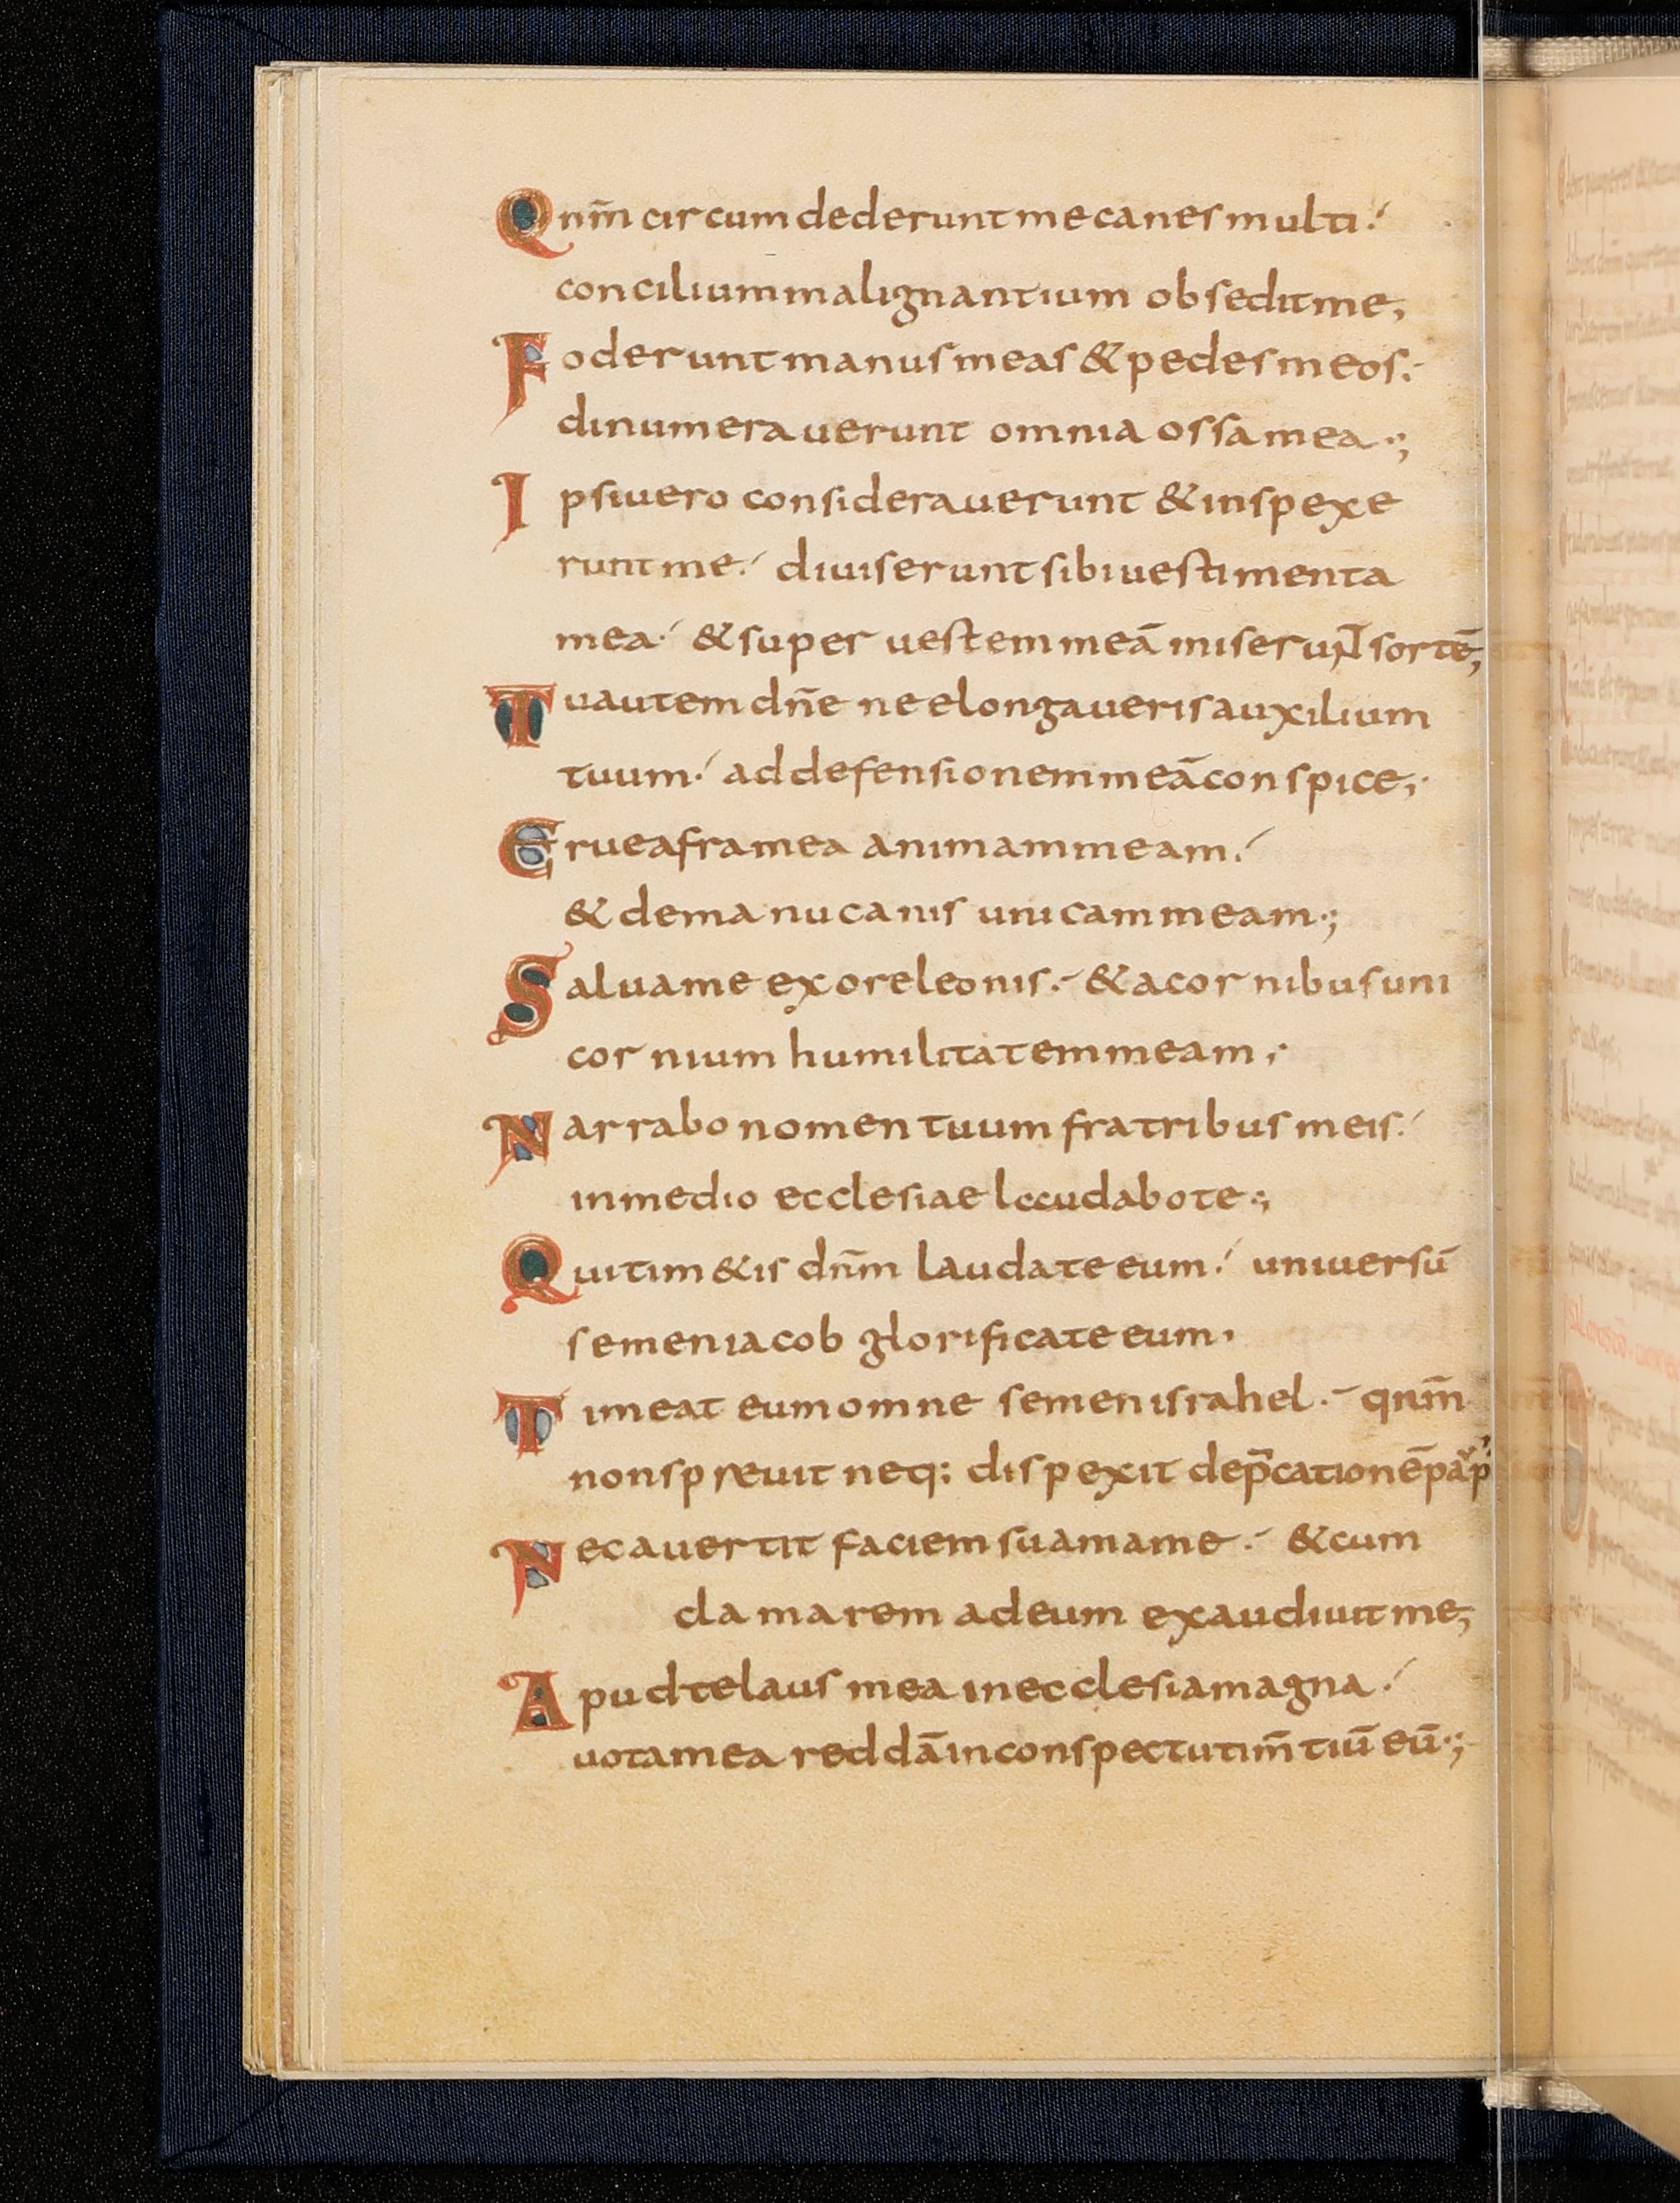 Qnm̄ circumdederunt me canes multi
concilium malignantium obsedit me;
Foderunt manus meas & pedes meos.
dinumerauerunt omnia ossa mea;
Ipsi uero considerauerunt & inspexe
runt me. diuiserunt sibi uestimenta
mea. & super uestem meā miserunt sortē;
Tu autem dn̄e ne elongaueris auxilium
tuum. ad defensionem meā conspice;
Erue a framea animam meam.
& de manu canis unicam meam;
Salua me ex ore leonis. & a cornibus uni
cornium humilitatem meam;
Narrabo nomen tuum fratribus meis.
in medio ecclesiae laudabo te;
Qui tim&is dn̄m laudate eum. uniuersū
semen iacob glorificate eum.
Timeat eum omne semen israhel. qnm̄
non spreuit neq: dispexit dep̄cationē
Nec auertit faciem suam a me. & cum
clamarem ad eum exaudiuit me;
Apud te laus mea in ecclesia magna.
uota mea reddā in conspectu tim̄tiū eū;